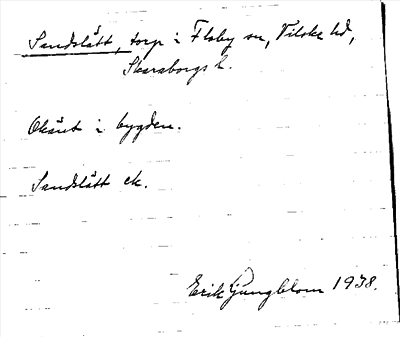 Sandslätt, torp i Floby sn, Vilske hd,
Skaraborgs l.
Okänt i bygden.
Sandslätt ek.
Erik Ljungblom 1938.